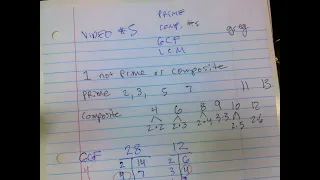 PRIME
VIDEO #5 COMP. #s
GCF
LCM
1 not prime or composite
prime 2, 3, 5 7 11 13
composite 4 6 8 9 10 12
2·2 2·3 2·4 3·3 2·5 2·6
GCF 28 12
4 2 14 2 6
7 3